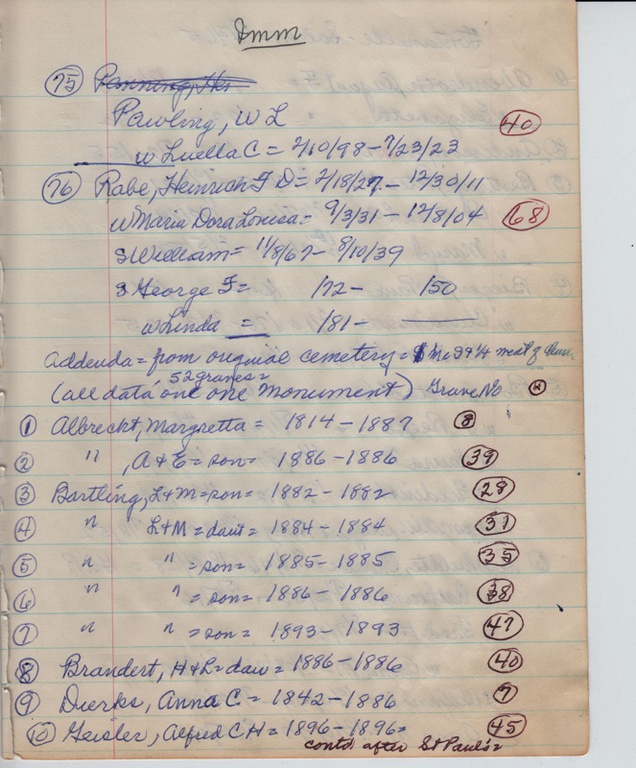 Imm
75 Panning, Hr
Pawling, W L 40
w Luella C = 2/10/98 - 7/23/23
76 Rabe, Heinrich F D = 2/18/27 - 12/30/11
w Maria Dora Louisa = 9/3/31 - 12/8/04 68
s William = 11/8/67 - 8/10/39
s George F = /72 - /50
w Linda = /81 -
Addenda = from original cemetery = 1 mi 39 1/4 west of
52 graves =
(all data on one monument) Grave No
1 Albrecht, Margretta = 1814 - 1887 8
2 " , A + E = son = 1886 - 1886 39
3 Bartling, L + M = son = 1882 - 1882 28
4 " L + M = daut = 1884 - 1884 31
5 " " = son = 1885 - 1885 35
6 " " = son = 1886 - 1886 38
7 " " = son = 1893 - 1893 47
8 Brandert, H + L = dau = 1886 - 1886 40
9 Dierks, Anna C = 1842 - 1886 7
10 Geisler, Alfred C H = 1896 - 1896 = 45
contd after St Paul's =